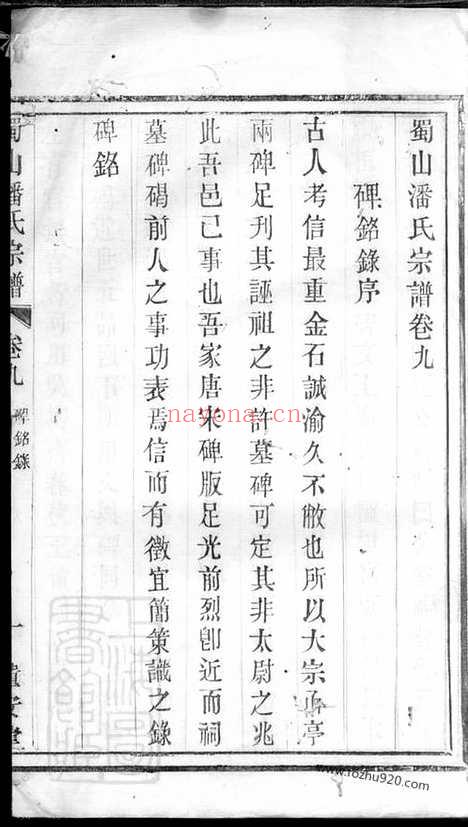 蜀山潘氏宗譜卷九
碑銘錄序
古人考信最重金石誠渝久不敝也所以大宗承亭
兩碑足刋其誣祖之非許墓碑可定其非太尉之兆
此吾邑已事也吾家唐宋碑版足光前烈卽近而祠
墓碑碣前人之事功表焉信而有徵宜簡策識之錄
碑銘
蜀山潘氏宗譜
卷九
碑銘錄
一
nayona.cn
www.fozhu920.com